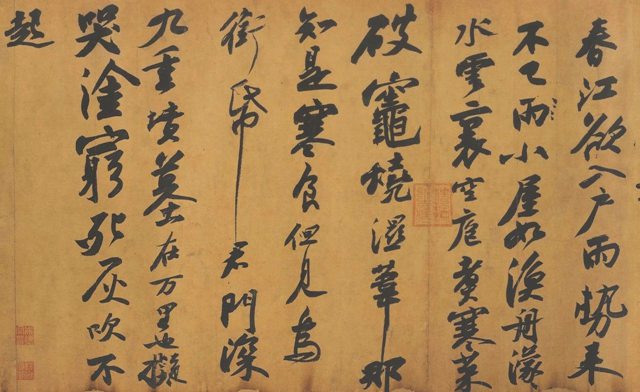 春江欲入户雨勢来
不已雨小屋如漁舟濛
水雲裏空庖煮寒菜
破竈燒濕葦那
知是寒食但見烏
銜帋君門深
九重墳墓在万里也擬
哭塗窮死灰吹不
起